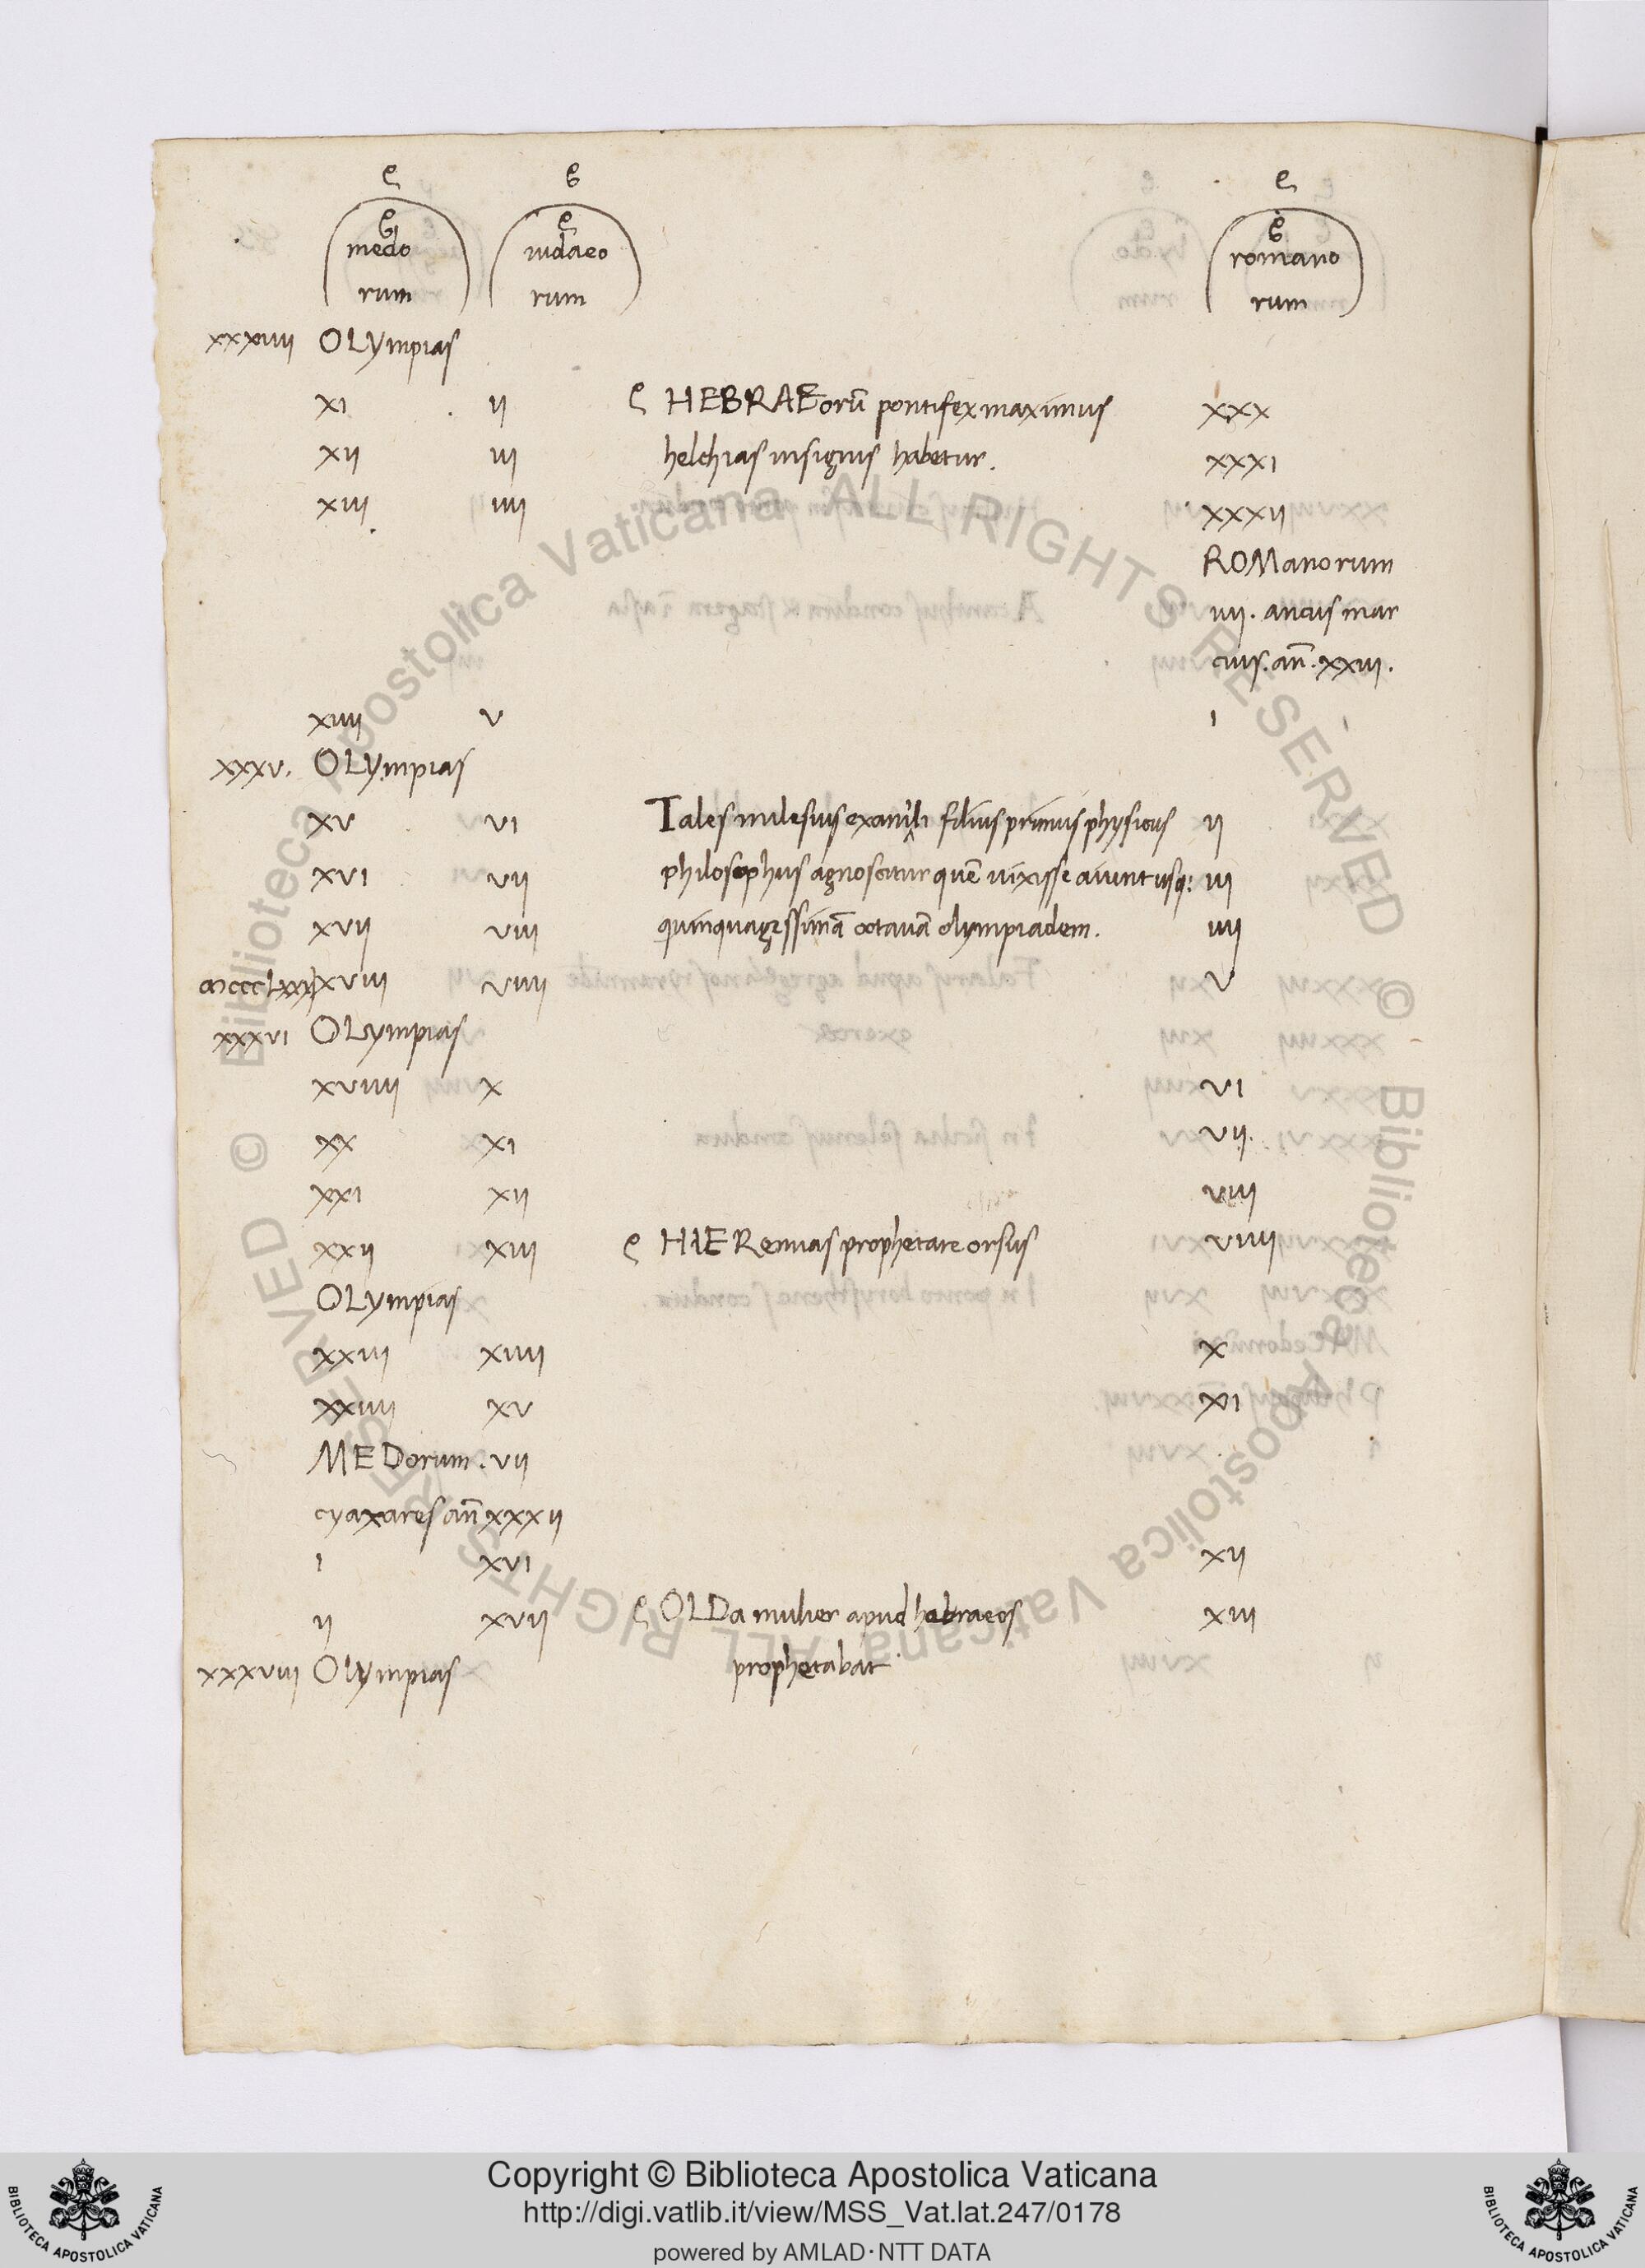 medo rum iudaeo rum romano rum
xxxiiii OLYmpias
xi ii HEBRAEorū pontifex maximus xxx
xii iii helchias insignis habetur. xxxi
xiii iiii xxxii
ROManorum
iiii. ancus mar
cius. añ. xxiii.
xiiii v i
xxxv. OLYmpias
xv vi Tales milesius exam'li filius primus physicus ii
xvi vii philosophus agnoscitur quē uixisse aiunt usq: iii
xvii viii quinquagessimā octauā olympiadem. iiii
ɑɔcccLxxx xviii viiii v
xxxvi OLympias
xviiii x vi
xx xi vii.
xxi xii viii
xxii xiii HIERemias prophetare orsus viiii
OLympias
xxiii xiiii x
xxiiii xv xi
MEDorum. vii
cyaxares añ xxxii
i xvi xii
ii xvii OLDa mulier apud habraeos xiii
xxxviii OLympias prophetabat
Copyright © Biblioteca Apostolica Vaticana
http://digi.vatlib.it/view/MSS_Vat.lat.247/0178
powered by AMLAD·NTT DATA
BIBLIOTECA APOSTOLICA VATICANA
BIBLIOTECA APOSTOLICA VATICANA